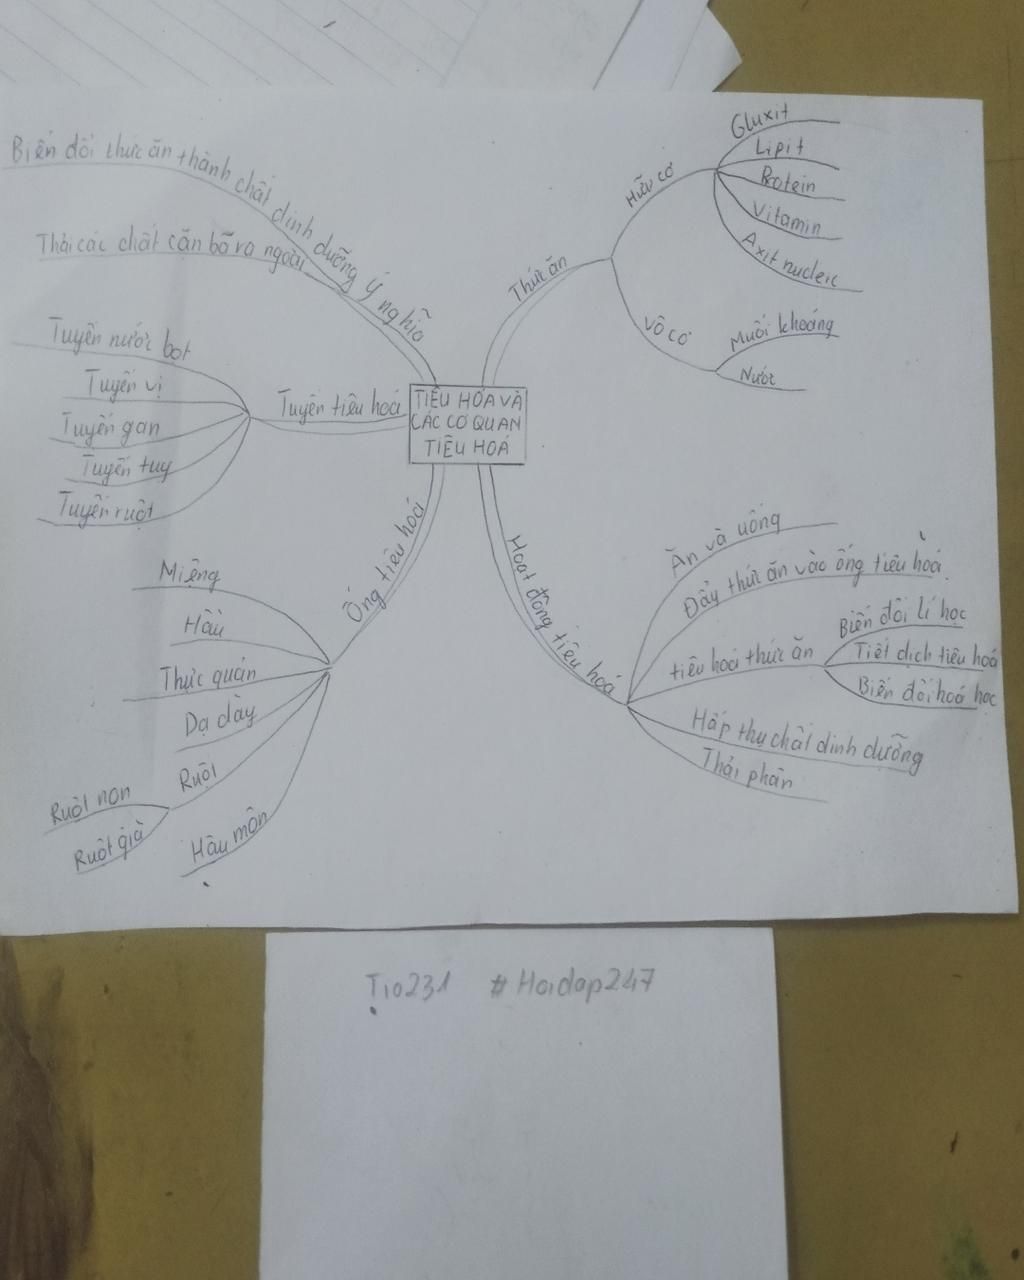 TIÊU HÓA VÀ
CÁC CƠ QUAN
TIÊU HOÁ
Ý nghĩa
Biến đổi thức ăn thành chất dinh dưỡng
Thải các chất cặn bã ra ngoài
Tuyến tiêu hoá
Tuyến nước bọt
Tuyến vị
Tuyến gan
Tuyến tuỵ
Tuyến ruột
Ống tiêu hoá
Miệng
Hầu
Thực quản
Dạ dày
Ruột
Ruột non
Ruột già
Hậu môn
Thức ăn
Hữu cơ
Gluxit
Lipit
Protein
Vitamin
Axit nucleic
Vô cơ
Muối khoáng
Nước
Hoạt động tiêu hoá
Ăn và uống
Đẩy thức ăn vào ống tiêu hoá
tiêu hoá thức ăn
Biến đổi lí học
Tiết dịch tiêu hoá
Biến đổi hoá học
Hấp thụ chất dinh dưỡng
Thải phân
Tio231 #Hoidap247